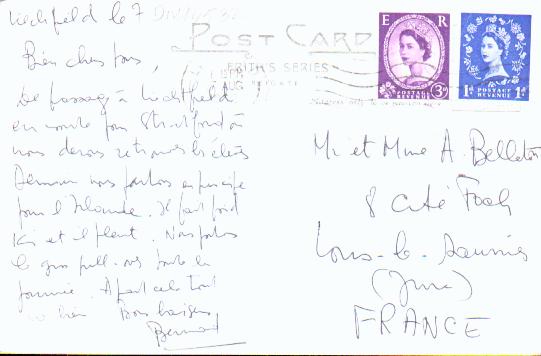 Lichfield le 7
POST CARD
FRITH'S SERIES
REIGATE
AUG
E R
POSTAGE REVENUE
3D
1D POSTAGE REVENUE 1D
Bien chers tous,
De passage à Lichfield
en route pour Stratford où
nous devons retrouver les clés
Demain nous partons en principe
pour l'Irlande. Il fait froid
ici et il pleut. Nous portons
le gros pull-over toute la
journée. A part cela tout
va bien Bons baisers
Bernard
Mr et Mme A. Belleton
8 cité Foch
Lons-le-Saunier
(Jura)
FRANCE